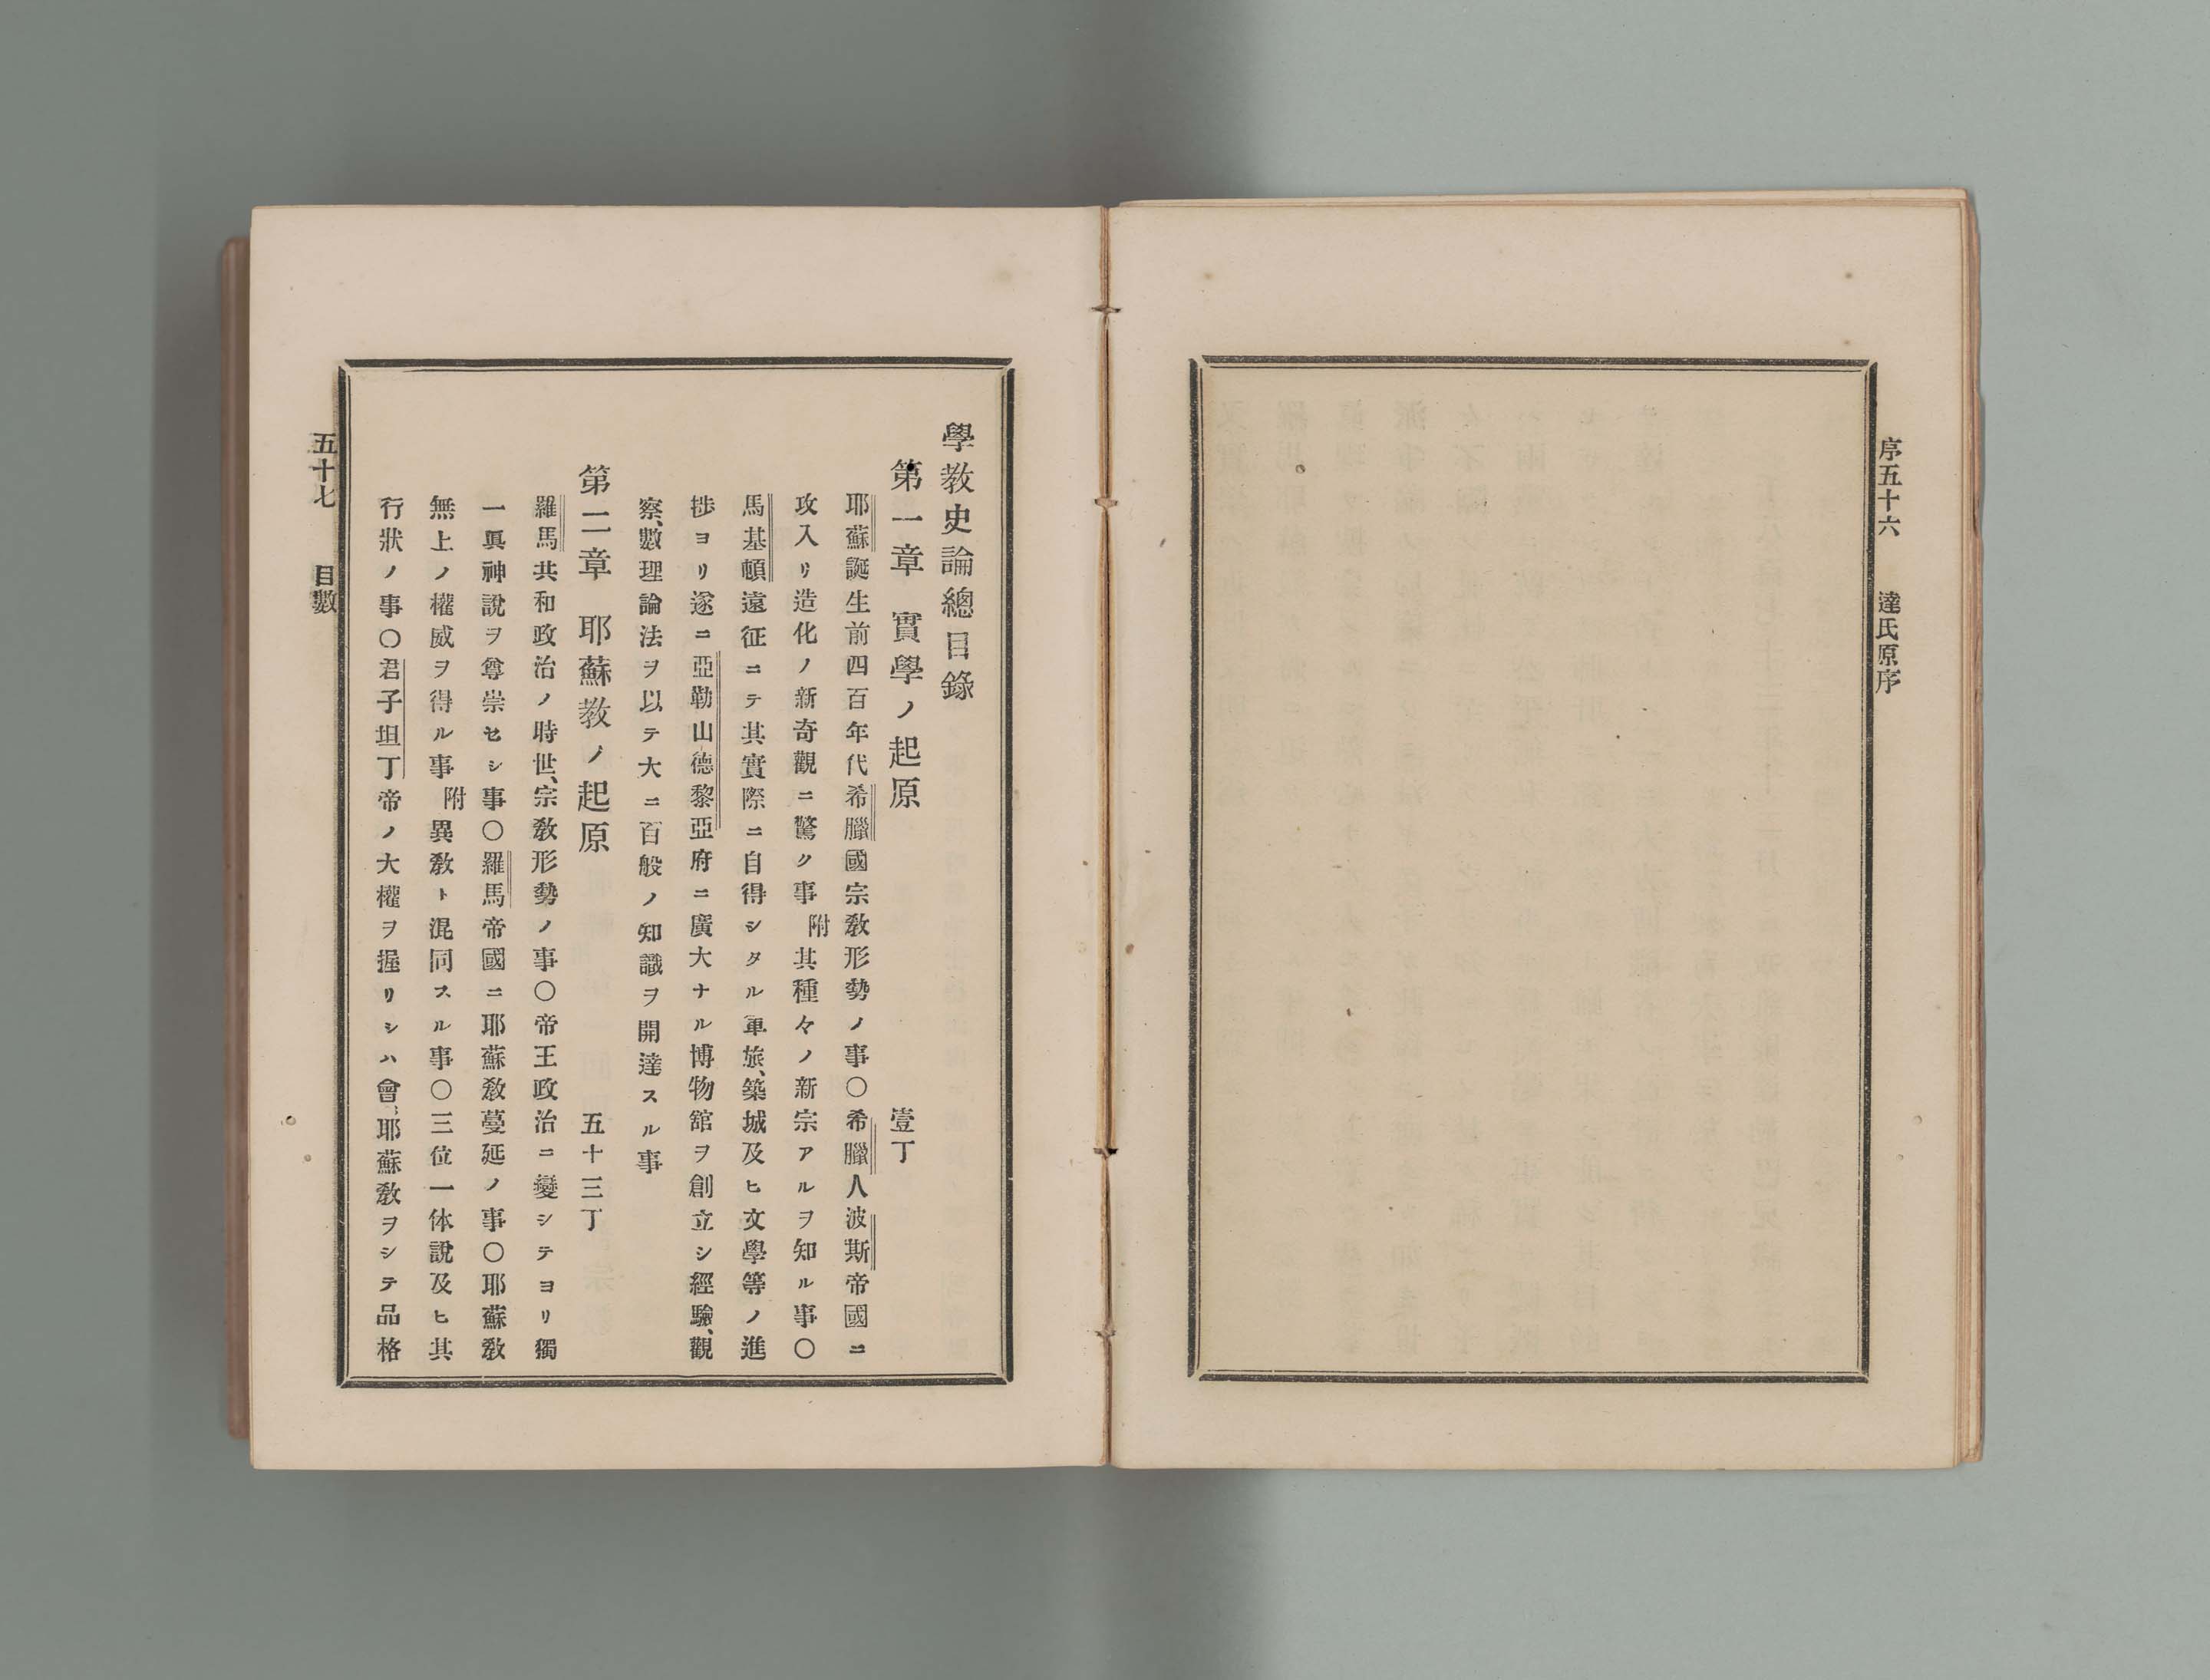 序五十六 達氏原序
學教史論總目錄
第一章 實學ノ起原 壹丁
耶蘇誕生前四百年代希臘國宗敎形勢ノ事〇希臘人波斯帝國ニ
攻入リ造化ノ新奇觀ニ驚ク事附其種々ノ新宗アルヲ知ル事〇
馬基頓遠征ニテ其實際ニ自得シタル軍旅、築城及ヒ文學等ノ進
捗ヨリ遂ニ亞勒山德黎亞府ニ廣大ナル博物舘ヲ創立シ經驗、觀
察、數理論法ヲ以テ大ニ百般ノ知識ヲ開達スル事
第二章 耶蘇教ノ起原 五十三丁
羅馬共和政治ノ時世、宗敎形勢ノ事〇帝王政治ニ變シテヨリ獨
一眞神說ヲ尊崇セシ事〇羅馬帝國ニ耶蘇敎蔓延ノ事〇耶蘇敎
無上ノ權威ヲ得ル事附異敎ト混同スル事〇三位一体說及ヒ其
行狀ノ事〇君子坦丁帝ノ大權ヲ握リシハ會、耶蘇敎ヲシテ品格
五十七 目數